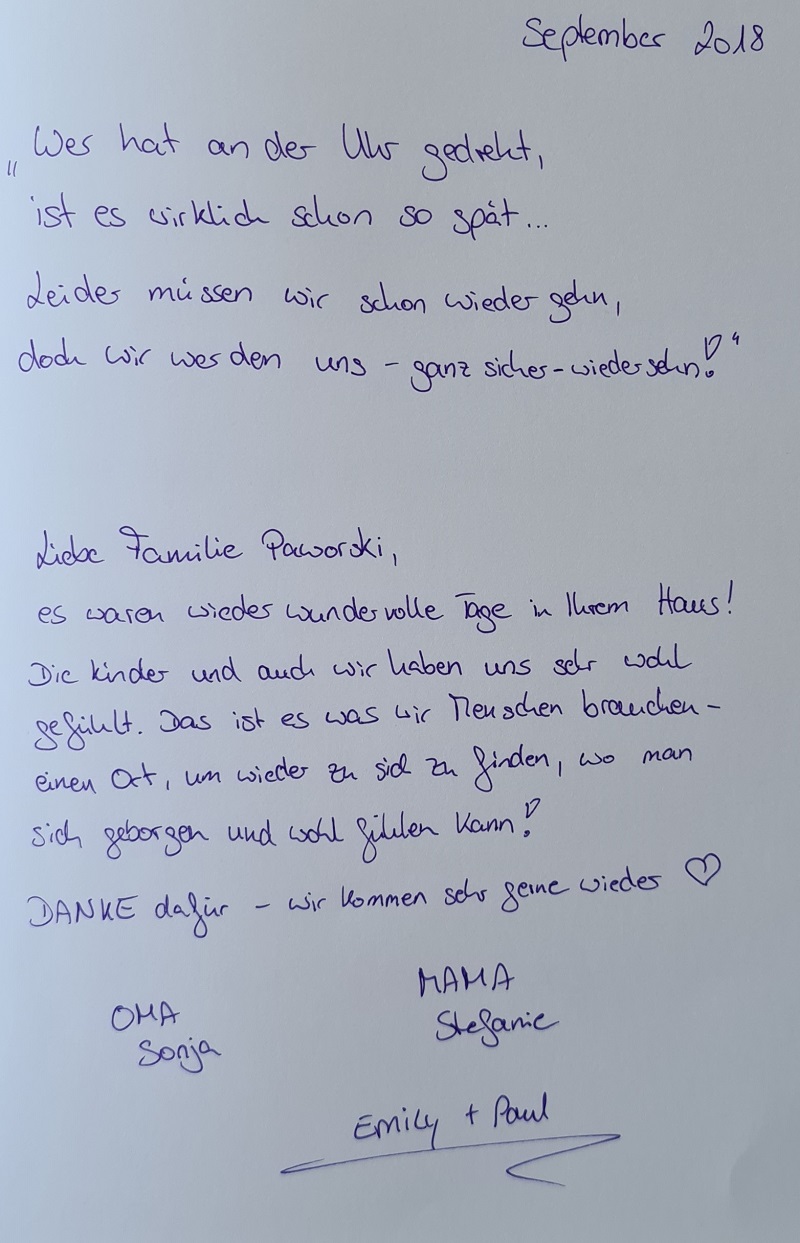 September 2018
„Wer hat an der Uhr gedreht,
ist es wirklich schon so spät...
Leider müssen wir schon wieder gehn,
doch wir werden uns - ganz sicher - wiedersehn!"
Liebe Familie Paworski,
es waren wieder wundervolle Tage in Ihrem Haus!
Die Kinder und auch wir haben uns sehr wohl
gefühlt. Das ist es was wir Menschen brauchen -
einen Ort, um wieder zu sich zu finden, wo man
sich geborgen und wohl fühlen kann!
DANKE dafür - wir kommen sehr gerne wieder ♡
MAMA
Stefanie
OMA
Sonja
Emily + Paul